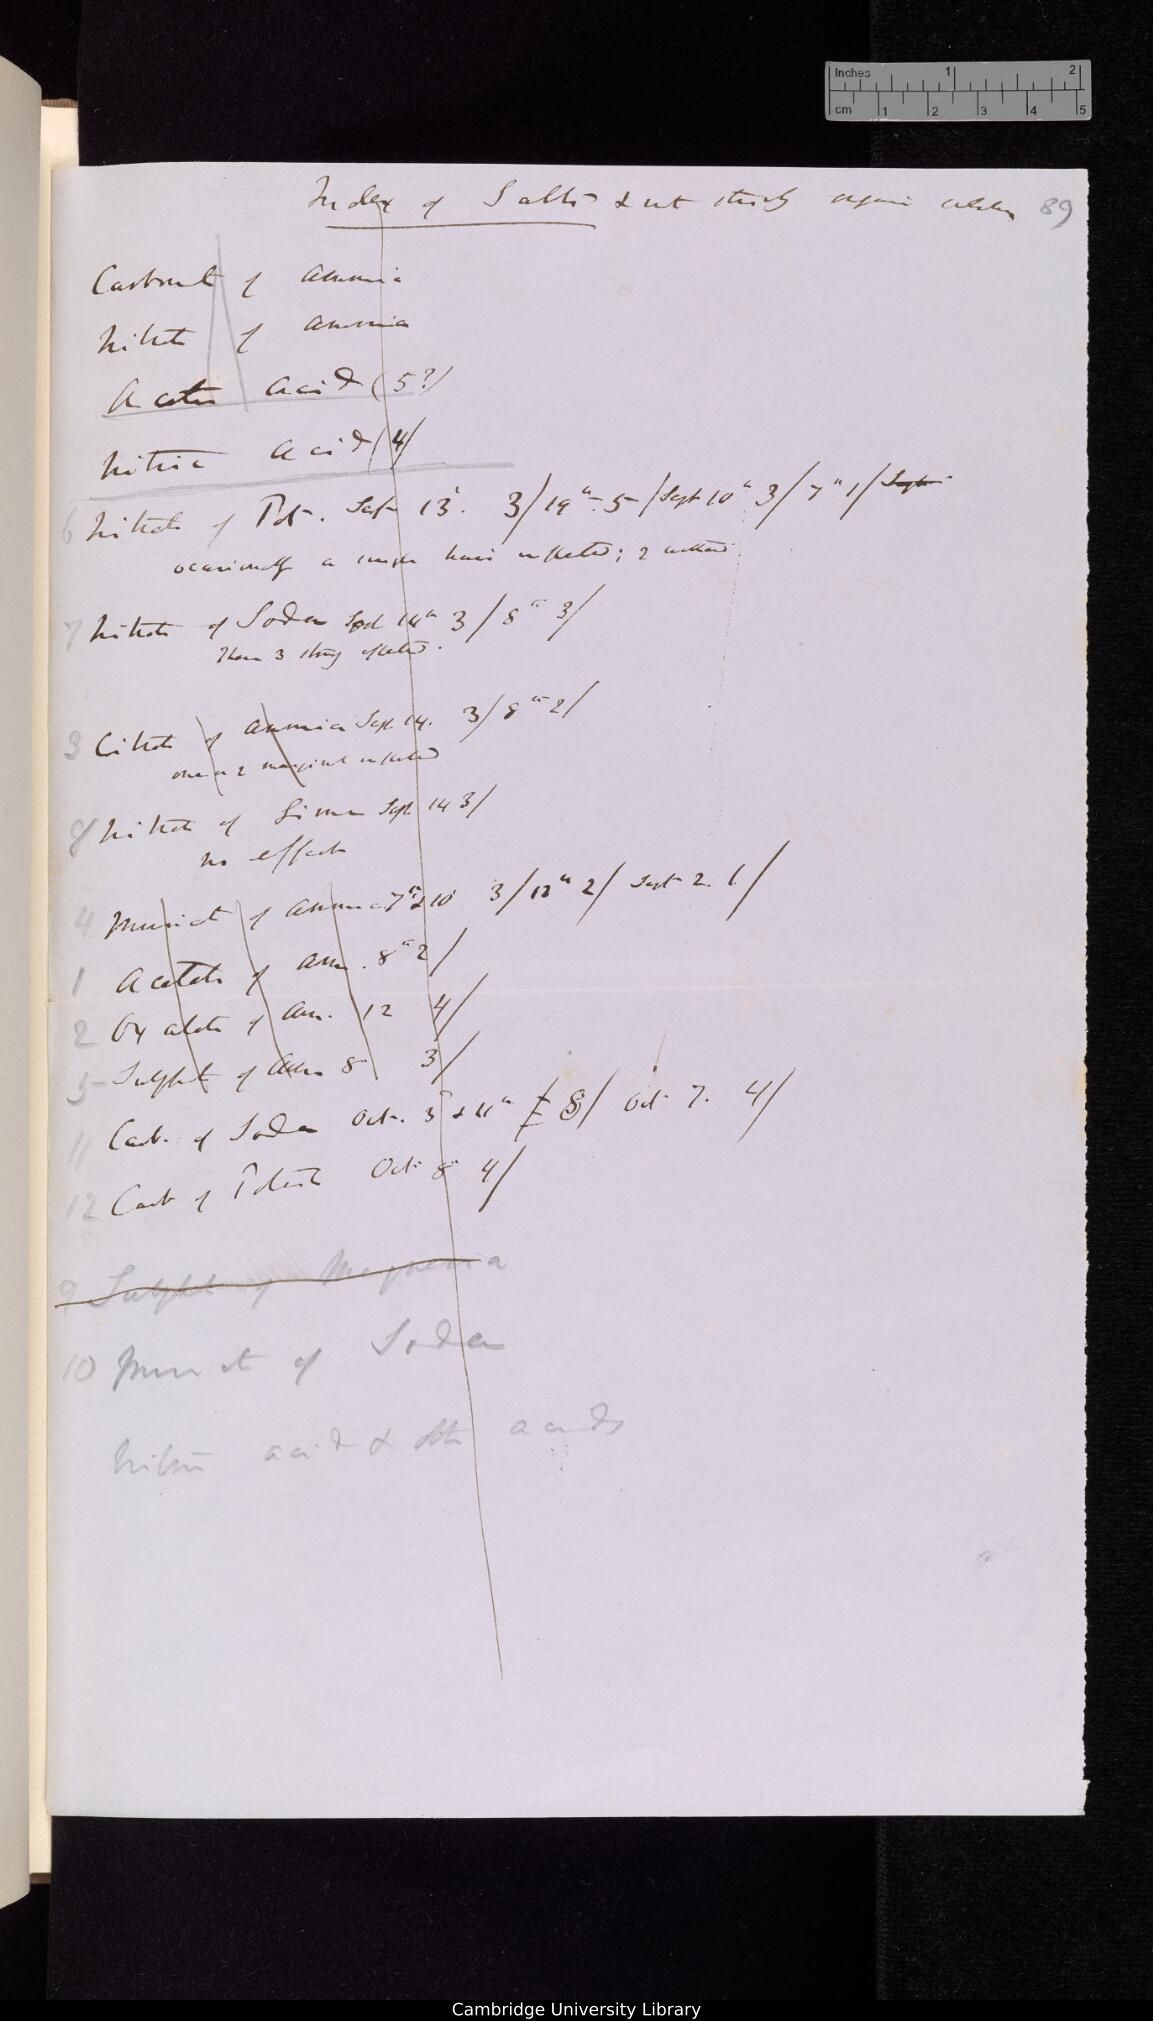 Inches 1 2
cm 1 2 3 4 5
Index of Salts & not 89
Carbonate of Ammonia
Nitrate of Ammonia
Acetic Acid (5?)
Nitric Acid (4)
6 Nitrate of Pot. Sept 13. 3/ 19th 5/ Sept 10th 3/ 7th 1/ Sept
occasionally a single hair inflected; 2
7 Nitrate of Soda Sept 14th 3/ 8th 3/
These 3
3 Citrate of Ammonia Sept 14. 3/ 8th 2/
one or 2 marginal inflected
8 Nitrate of Lime Sept 14 3/
no effect
4 Muriate of Ammonia 7th & 10 3/ 12th 2/ Sept 2. 1/
1 Acetate of Amm. 8th 2/
2 Oxalate of Am. 12 4/
5 Sulphate of Amm 8 3/
11 Carb. of Soda Oct. 3 & 11th 8/ Oct 7. 4/
12 Carb of Potash Oct 8 4/
9 Sulphate of Magnesia
10 Muriate of Soda
Nitric acid & other acids
Cambridge University Library